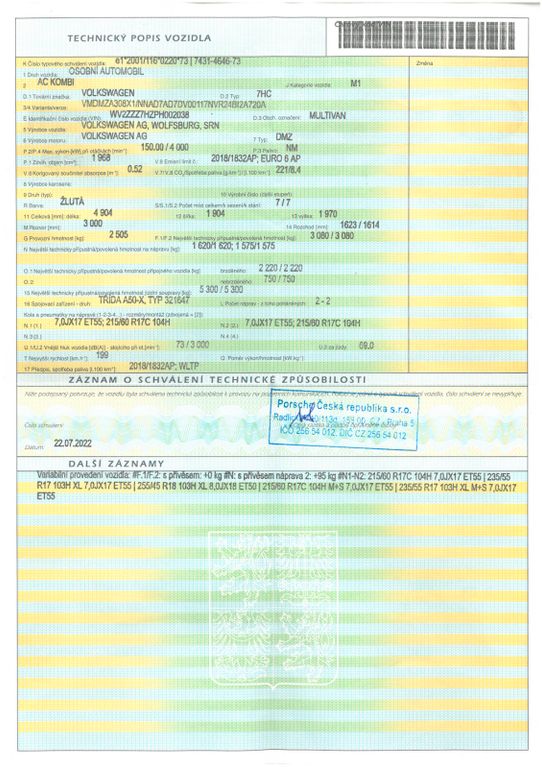 TECHNICKÝ POPIS VOZIDLA
K Číslo typového schválení vozidla: e1*2001/116*0220*73 | 7431-4646-73
Změna
1 Druh vozidla: OSOBNÍ AUTOMOBIL
2 AC KOMBI J Kategorie vozidla: M1
D.1 Tovární značka: VOLKSWAGEN D.2 Typ: 7HC
3/4 Varianta/verze: VMDMZA308X1/NNAD7AD7DV00117NVR24BI2A720A
E Identifikační číslo vozidla (VIN): WV2ZZZ7HZPH002038 D.3 Obch. označení: MULTIVAN
5 Výrobce vozidla: VOLKSWAGEN AG, WOLFSBURG, SRN
6 Výrobce motoru: VOLKSWAGEN AG 7 Typ: DMZ
P.2/P.4 Max. výkon [kW] při otáčkách [min⁻¹]: 150.00 / 4 000 P.3 Palivo: NM
P.1 Zdvih. objem [cm³]: 1 968 V.9 Emisní limit č.: 2018/1832AP; EURO 6 AP
V.6 Korigovaný součinitel absorpce [m⁻¹]: 0.52 V.7/V.8 CO₂/Spotřeba paliva [g.km⁻¹]/[l.100 km⁻¹] 221/8.4
8 Výrobce karoserie:
9 Druh (typ): 10 Výrobní číslo (další stupeň):
R Barva: ŽLUTÁ S/S.1/S.2 Počet míst celkem/k sezení/k stání: 7 / 7
11 Celková [mm]: délka: 4 904 12 šířka: 1 904 13 výška: 1 970
M Rozvor [mm]: 3 000 14 Rozchod [mm]: 1623 / 1614
G Provozní hmotnost [kg]: 2 505 F.1/F.2 Největší technicky přípustná/povolená hmotnost [kg]: 3 080 / 3 080
N Největší technicky přípustná/povolená hmotnost na nápravu [kg]: 1 620/1 620; 1 575/1 575
O.1 Největší technicky přípustná/povolená hmotnost přípojného vozidla [kg]: brzděného 2 220 / 2 220
O.2 nebrzděného 750 / 750
15 Největší technicky přípustná/povolená hmotnost jízdní soupravy [kg]: 5 300 / 5 300
16 Spojovací zařízení - druh: TŘÍDA A50-X, TYP 321647 L Počet náprav - z toho poháněných: 2 - 2
Kola a pneumatiky na nápravě (1-2-3-4...) - rozměry/montáž [zdvojená = (2)]:
N.1 (1.) 7,0JX17 ET55; 215/60 R17C 104H N.2 (2.) 7,0JX17 ET55; 215/60 R17C 104H
N.3 (3.) N.4 (4.)
U.1/U.2 Vnější hluk vozidla [dB(A)] - stojícího při ot.[min⁻¹]: 73 / 3 000 U.3 za jízdy: 69.0
T Nejvyšší rychlost [km.h⁻¹]: 199 Q Poměr výkon/hmotnost [kW.kg⁻¹]:
17 Předpis, spotřeba paliva [l.100 km⁻¹]: 2018/1832AP; WLTP
ZÁZNAM O SCHVÁLENÍ TECHNICKÉ ZPŮSOBILOSTI
Číslo schválení:
Porsche Česká republika s.r.o.
IČO 256 54 012, DIČ CZ 256 54 012
Datum: 22.07.2022
DALŠÍ ZÁZNAMY
Variabilní provedení vozidla: #F.1/F.2: s přívěsem: +0 kg #N: s přívěsem náprava 2: +95 kg #N1-N2: 215/60 R17C 104H 7,0JX17 ET55 | 235/55
R17 103H XL 7,0JX17 ET55 | 255/45 R18 103H XL 8,0JX18 ET50 | 215/60 R17C 104H M+S 7,0JX17 ET55 | 235/55 R17 103H XL M+S 7,0JX17
ET55